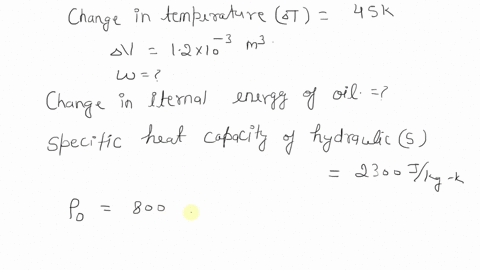 Change in temperature (ΔT) = 45K
ΔV = 1.2×10⁻³ m³.
W = ?
Change in Iternal energy of oil. = ?
Specific heat capacity of hydraulic (S)
= 2300 J/kg-K
ρ₀ = 800